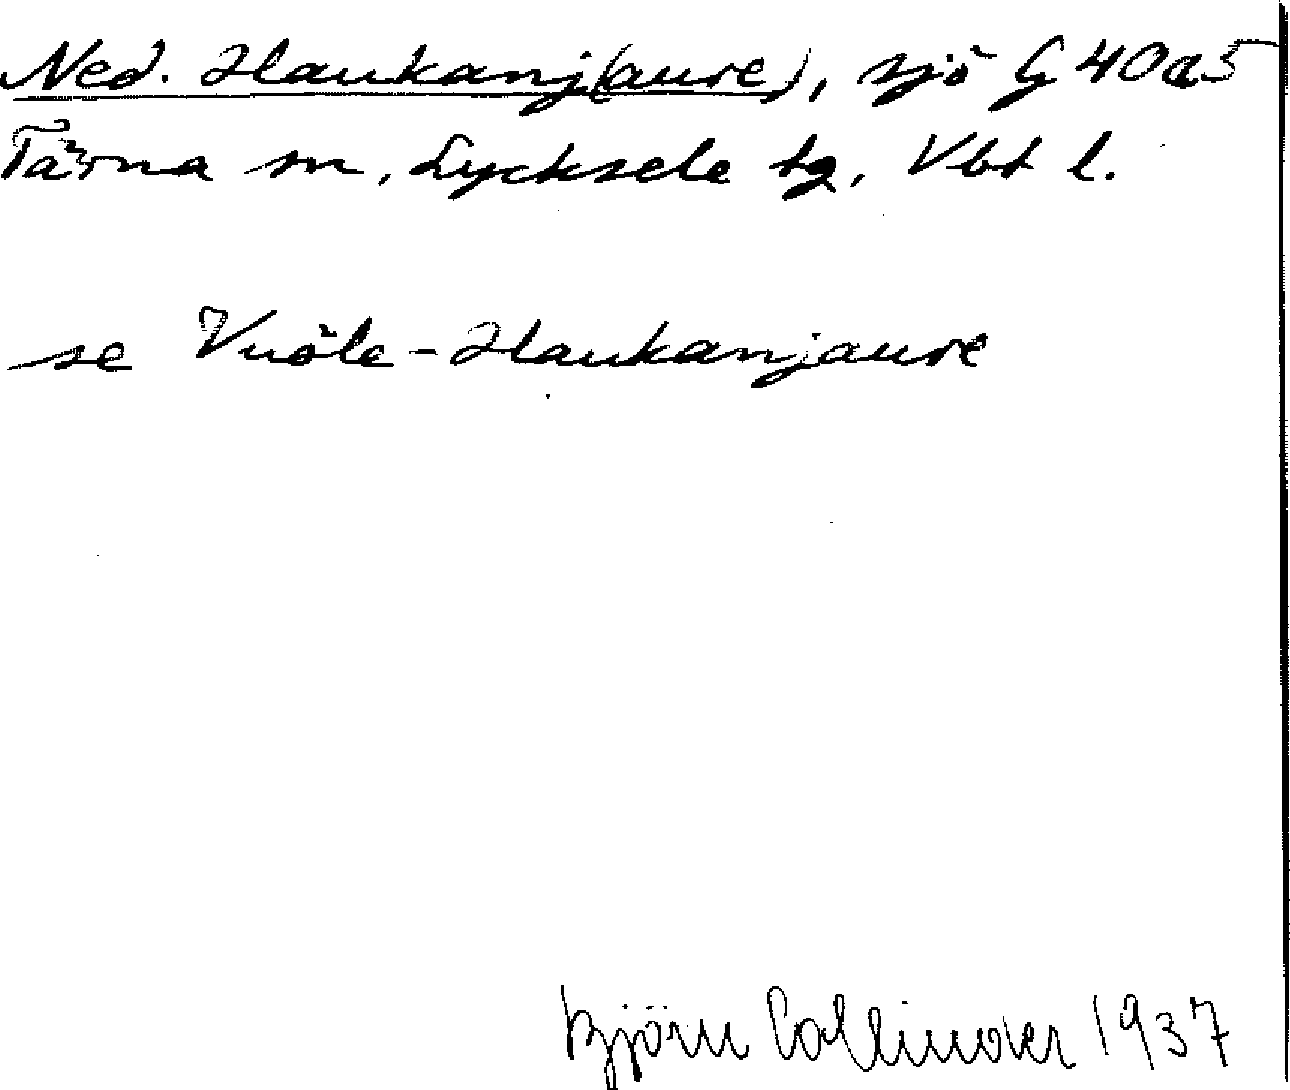 Ned. Haukanj(aure), sjö G 40 a 5
Tärna sn, Lycksele tg, Vbt l.
se Vuöle-Haukanjaure
Björn Collinder 1937